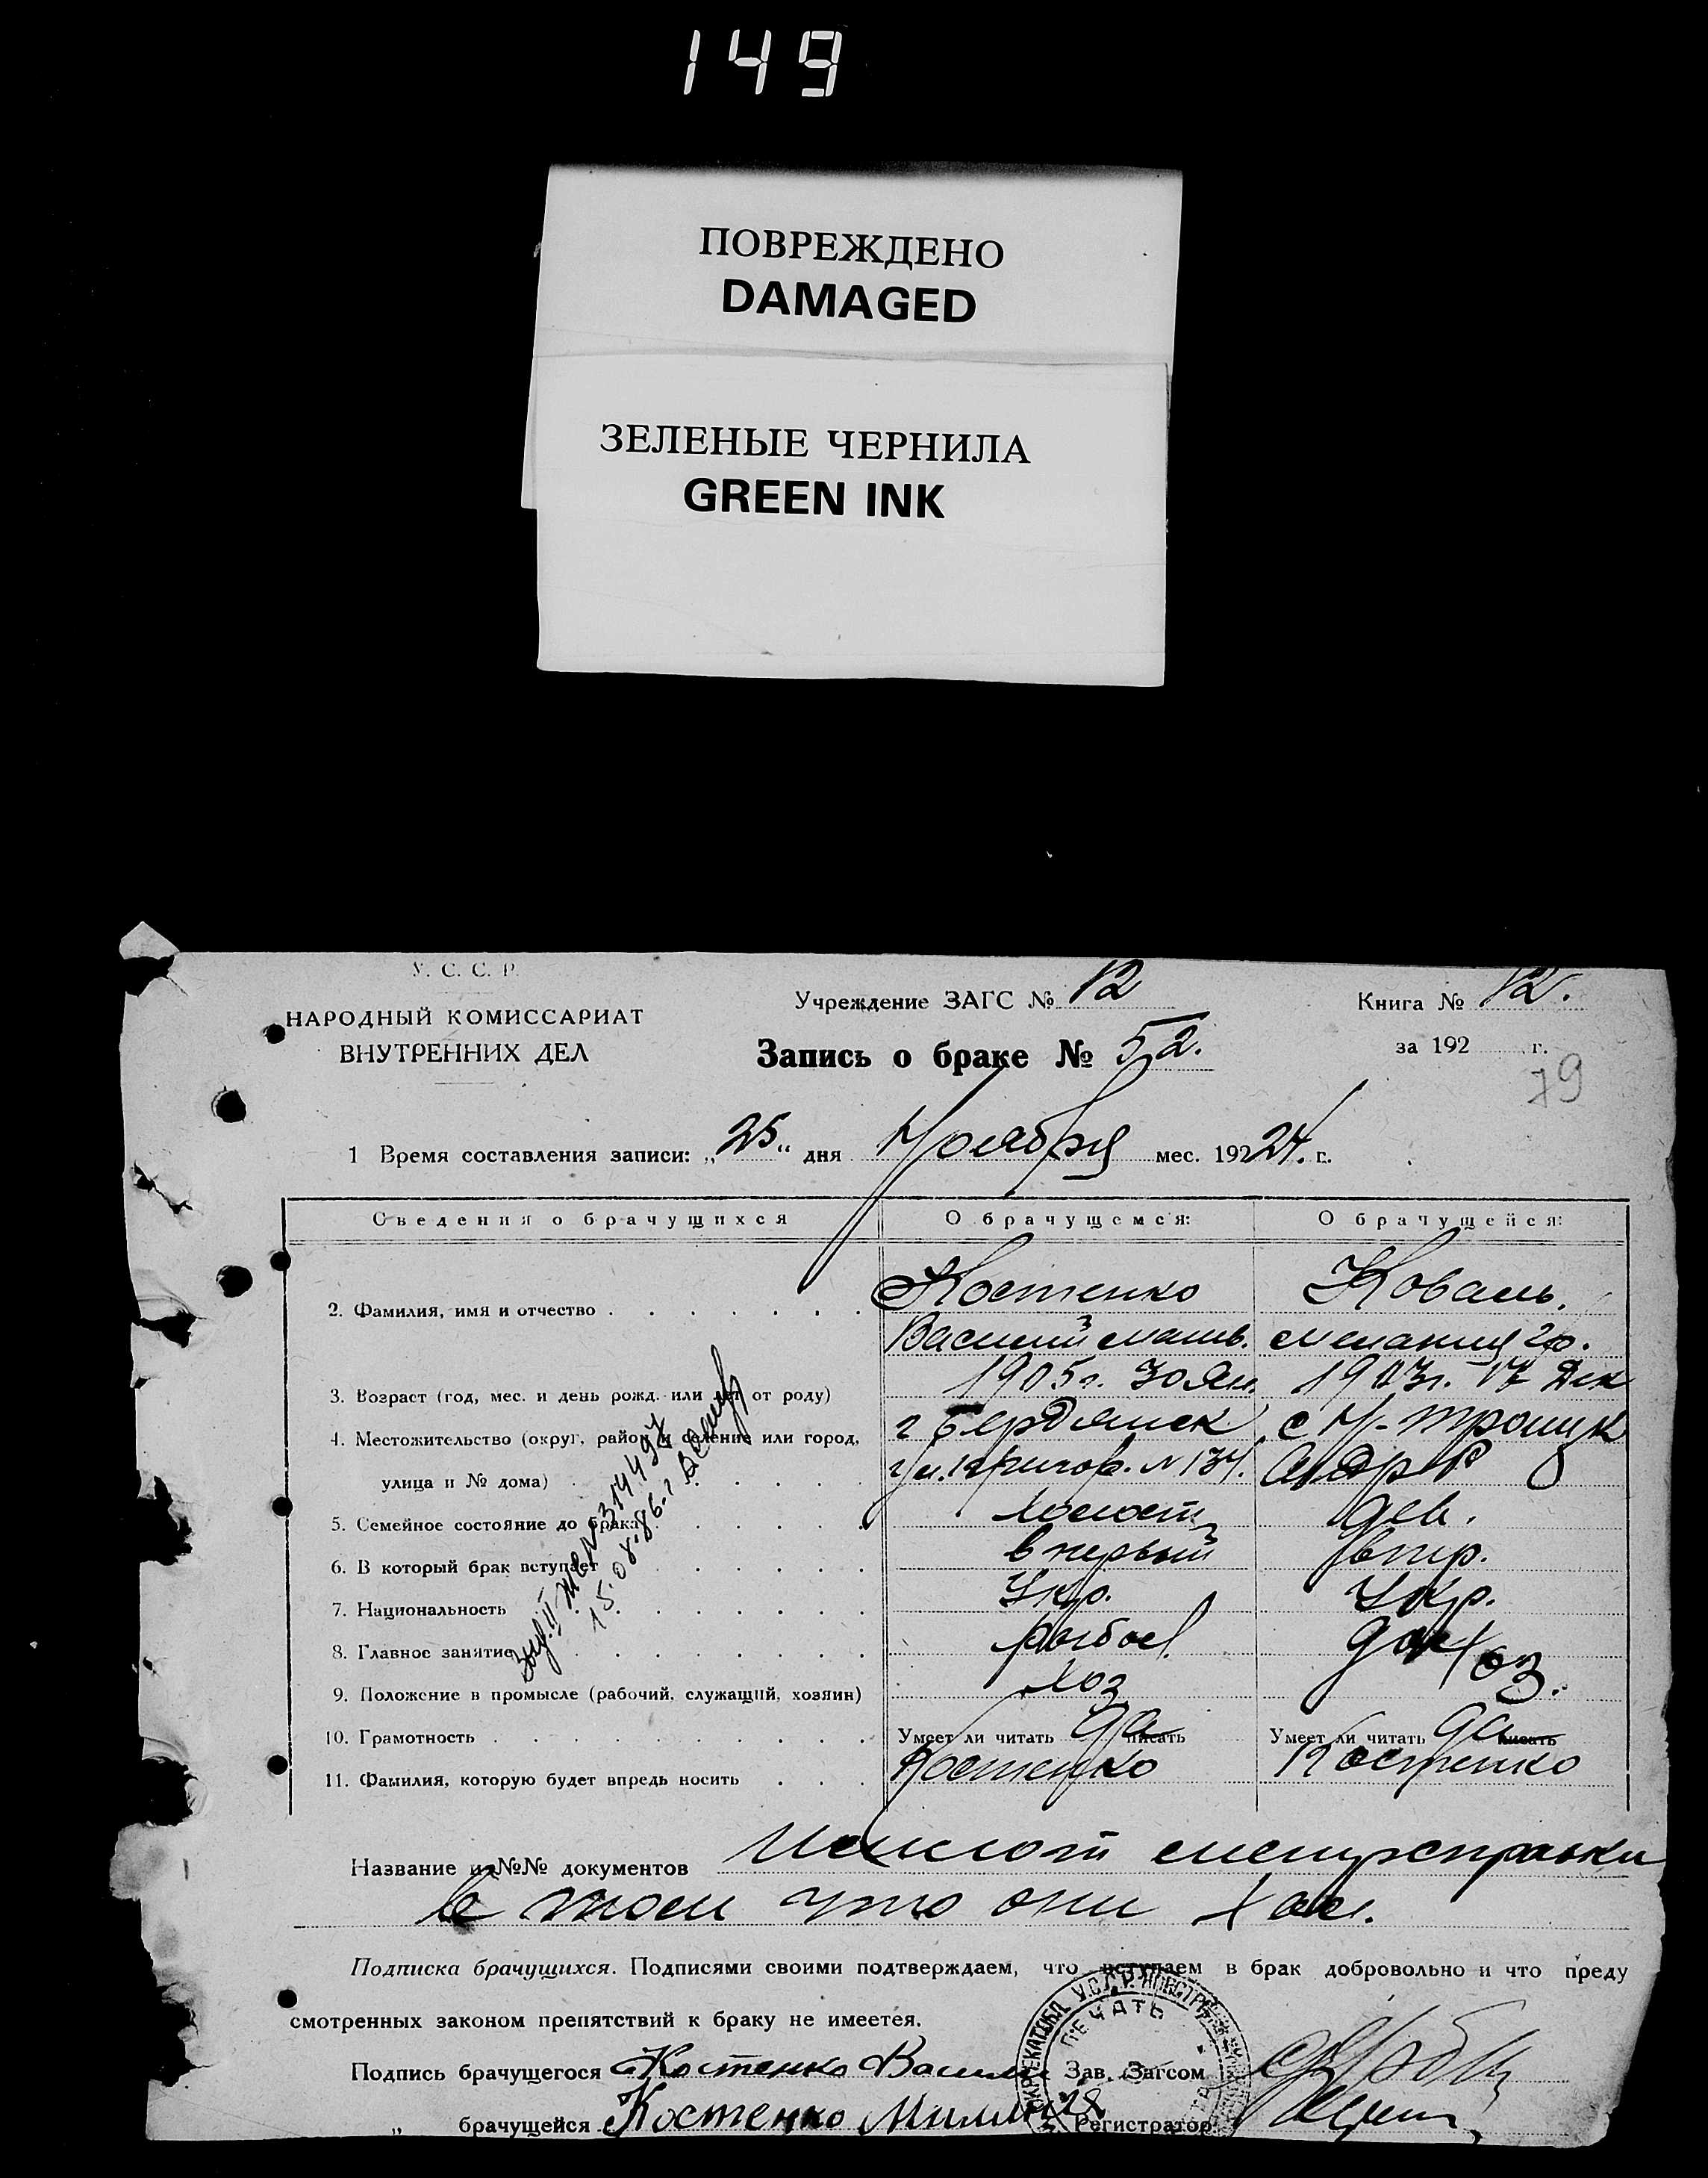 149
ПОВРЕЖДЕНО
DAMAGED
ЗЕЛЕНЫЕ ЧЕРНИЛА
GREEN INK
У. С. С. Р.
НАРОДНЫЙ КОМИССАРИАТ
ВНУТРЕННИХ ДЕЛ
Учреждение ЗАГС № 12
Книга № 12.
Запись о браке № 52.
за 192 г.
79
1 Время составления записи: „25“ дня Ноября мес. 19224. г.
Сведения о брачущихся О брачущемся: О брачущейся:
2. Фамилия, имя и отчество Костенко Коваль.
Василий матв. мелания гр.
3. Возраст (год, мес. и день рожд. или лет от роду) 1905г. 30 Ян. 1903г. 17 Дек
4. Местожительство (округ, район и селение или город, г Бердянск с Н-Троицк
улица и № дома) № 134.
5. Семейное состояние до брака холост дев.
6. В который брак вступает в первый впер.
7. Национальность Укр. Укр.
8. Главное занятие рыбол. дом хоз.
9. Положение в промысле (рабочий, служащий, хозяин) хоз
10. Грамотность Умеет ли читать да писать Умеет ли читать да писать
11. Фамилия, которую будет впредь носить Костенко Костенко
15.08.86. г.
Название и №№ документов
в том что они хол.
Подписка брачущихся. Подписями своими подтверждаем, что вступаем в брак добровольно и что преду
смотренных законом препятствий к браку не имеется.
Подпись брачущегося Костенко Василий Зав. Загсом
„ брачущейся Костенко Регистратор
ПЕЧАТЬ